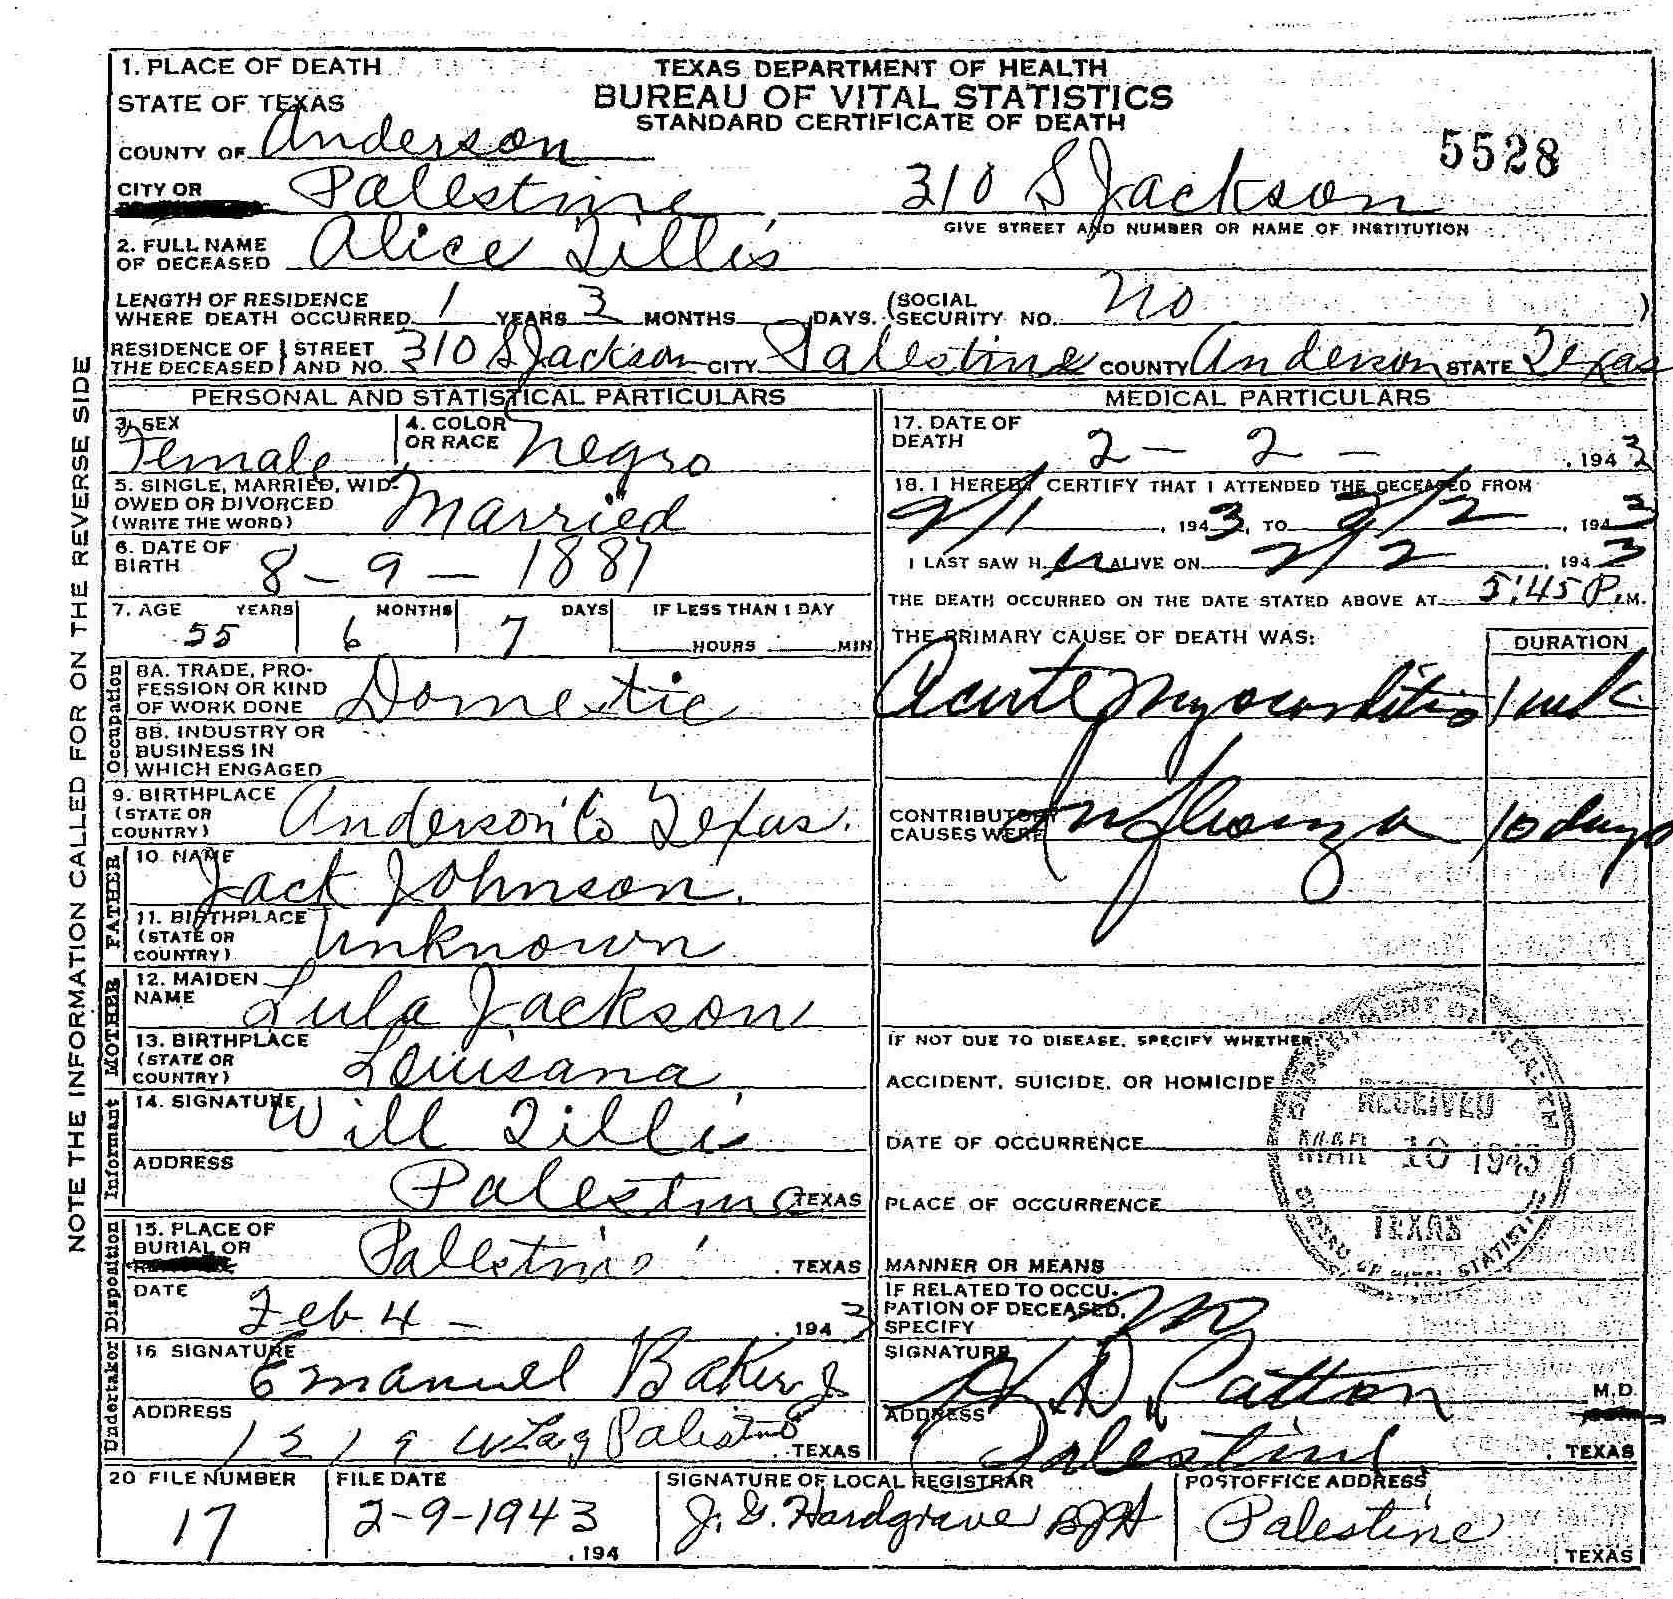 1. PLACE OF DEATH
TEXAS DEPARTMENT OF HEALTH
STATE OF TEXAS
BUREAU OF VITAL STATISTICS
STANDARD CERTIFICATE OF DEATH
COUNTY OF Anderson
5528
CITY OR Palestine 310 S Jackson
GIVE STREET AND NUMBER OR NAME OF INSTITUTION
2. FULL NAME OF DECEASED Alice Tillis
LENGTH OF RESIDENCE WHERE DEATH OCCURRED 1 YEARS 3 MONTHS DAYS. (SOCIAL SECURITY NO. no )
RESIDENCE OF THE DECEASED STREET AND NO. 310 S Jackson CITY Palestine COUNTY Anderson STATE Texas
NOTE THE INFORMATION CALLED FOR ON THE REVERSE SIDE
PERSONAL AND STATISTICAL PARTICULARS
3. SEX Female
4. COLOR OR RACE Negro
5. SINGLE, MARRIED, WIDOWED OR DIVORCED (WRITE THE WORD) Married
6. DATE OF BIRTH 8 - 9 - 1887
7. AGE YEARS 55 MONTHS 6 DAYS 7 IF LESS THAN 1 DAY HOURS MIN
Occupation
8A. TRADE, PROFESSION OR KIND OF WORK DONE Domestic
8B. INDUSTRY OR BUSINESS IN WHICH ENGAGED
9. BIRTHPLACE (STATE OR COUNTRY) Anderson Co Texas.
FATHER
10. NAME Jack Johnson.
11. BIRTHPLACE (STATE OR COUNTRY) Unknown
MOTHER
12. MAIDEN NAME Lula Jackson
13. BIRTHPLACE (STATE OR COUNTRY) Louisana
Informant
14. SIGNATURE Will Tillis
ADDRESS Palestine TEXAS
Disposition
15. PLACE OF BURIAL OR Palestine . TEXAS
DATE Feb 4 - . 1943
Undertaker
16 SIGNATURE Emanuel Baker Jr
ADDRESS Palestine . TEXAS
MEDICAL PARTICULARS
17. DATE OF DEATH 2 - 2 - , 1943
18. I HEREBY CERTIFY THAT I ATTENDED THE DECEASED FROM
2/1 , 1943, TO 2/2 , 1943
I LAST SAW H er ALIVE ON 2/2 , 1943
THE DEATH OCCURRED ON THE DATE STATED ABOVE AT 5:45 P. M.
THE PRIMARY CAUSE OF DEATH WAS: DURATION
Acute Myocarditis 1 wk
CONTRIBUTORY CAUSES WERE Influenza 10 days
IF NOT DUE TO DISEASE, SPECIFY WHETHER
ACCIDENT, SUICIDE, OR HOMICIDE
DATE OF OCCURRENCE
PLACE OF OCCURRENCE
MANNER OR MEANS
DEPARTMENT OF HEALTH
RECEIVED
MAR 10 1943
TEXAS
BUREAU OF VITAL STATISTICS
IF RELATED TO OCCUPATION OF DECEASED, SPECIFY no
SIGNATURE D. Patton M.D.
ADDRESS Palestine . TEXAS
20 FILE NUMBER 17
FILE DATE 2-9-1943 , 194
SIGNATURE OF LOCAL REGISTRAR J. G. Hardgrave
POSTOFFICE ADDRESS Palestine . TEXAS